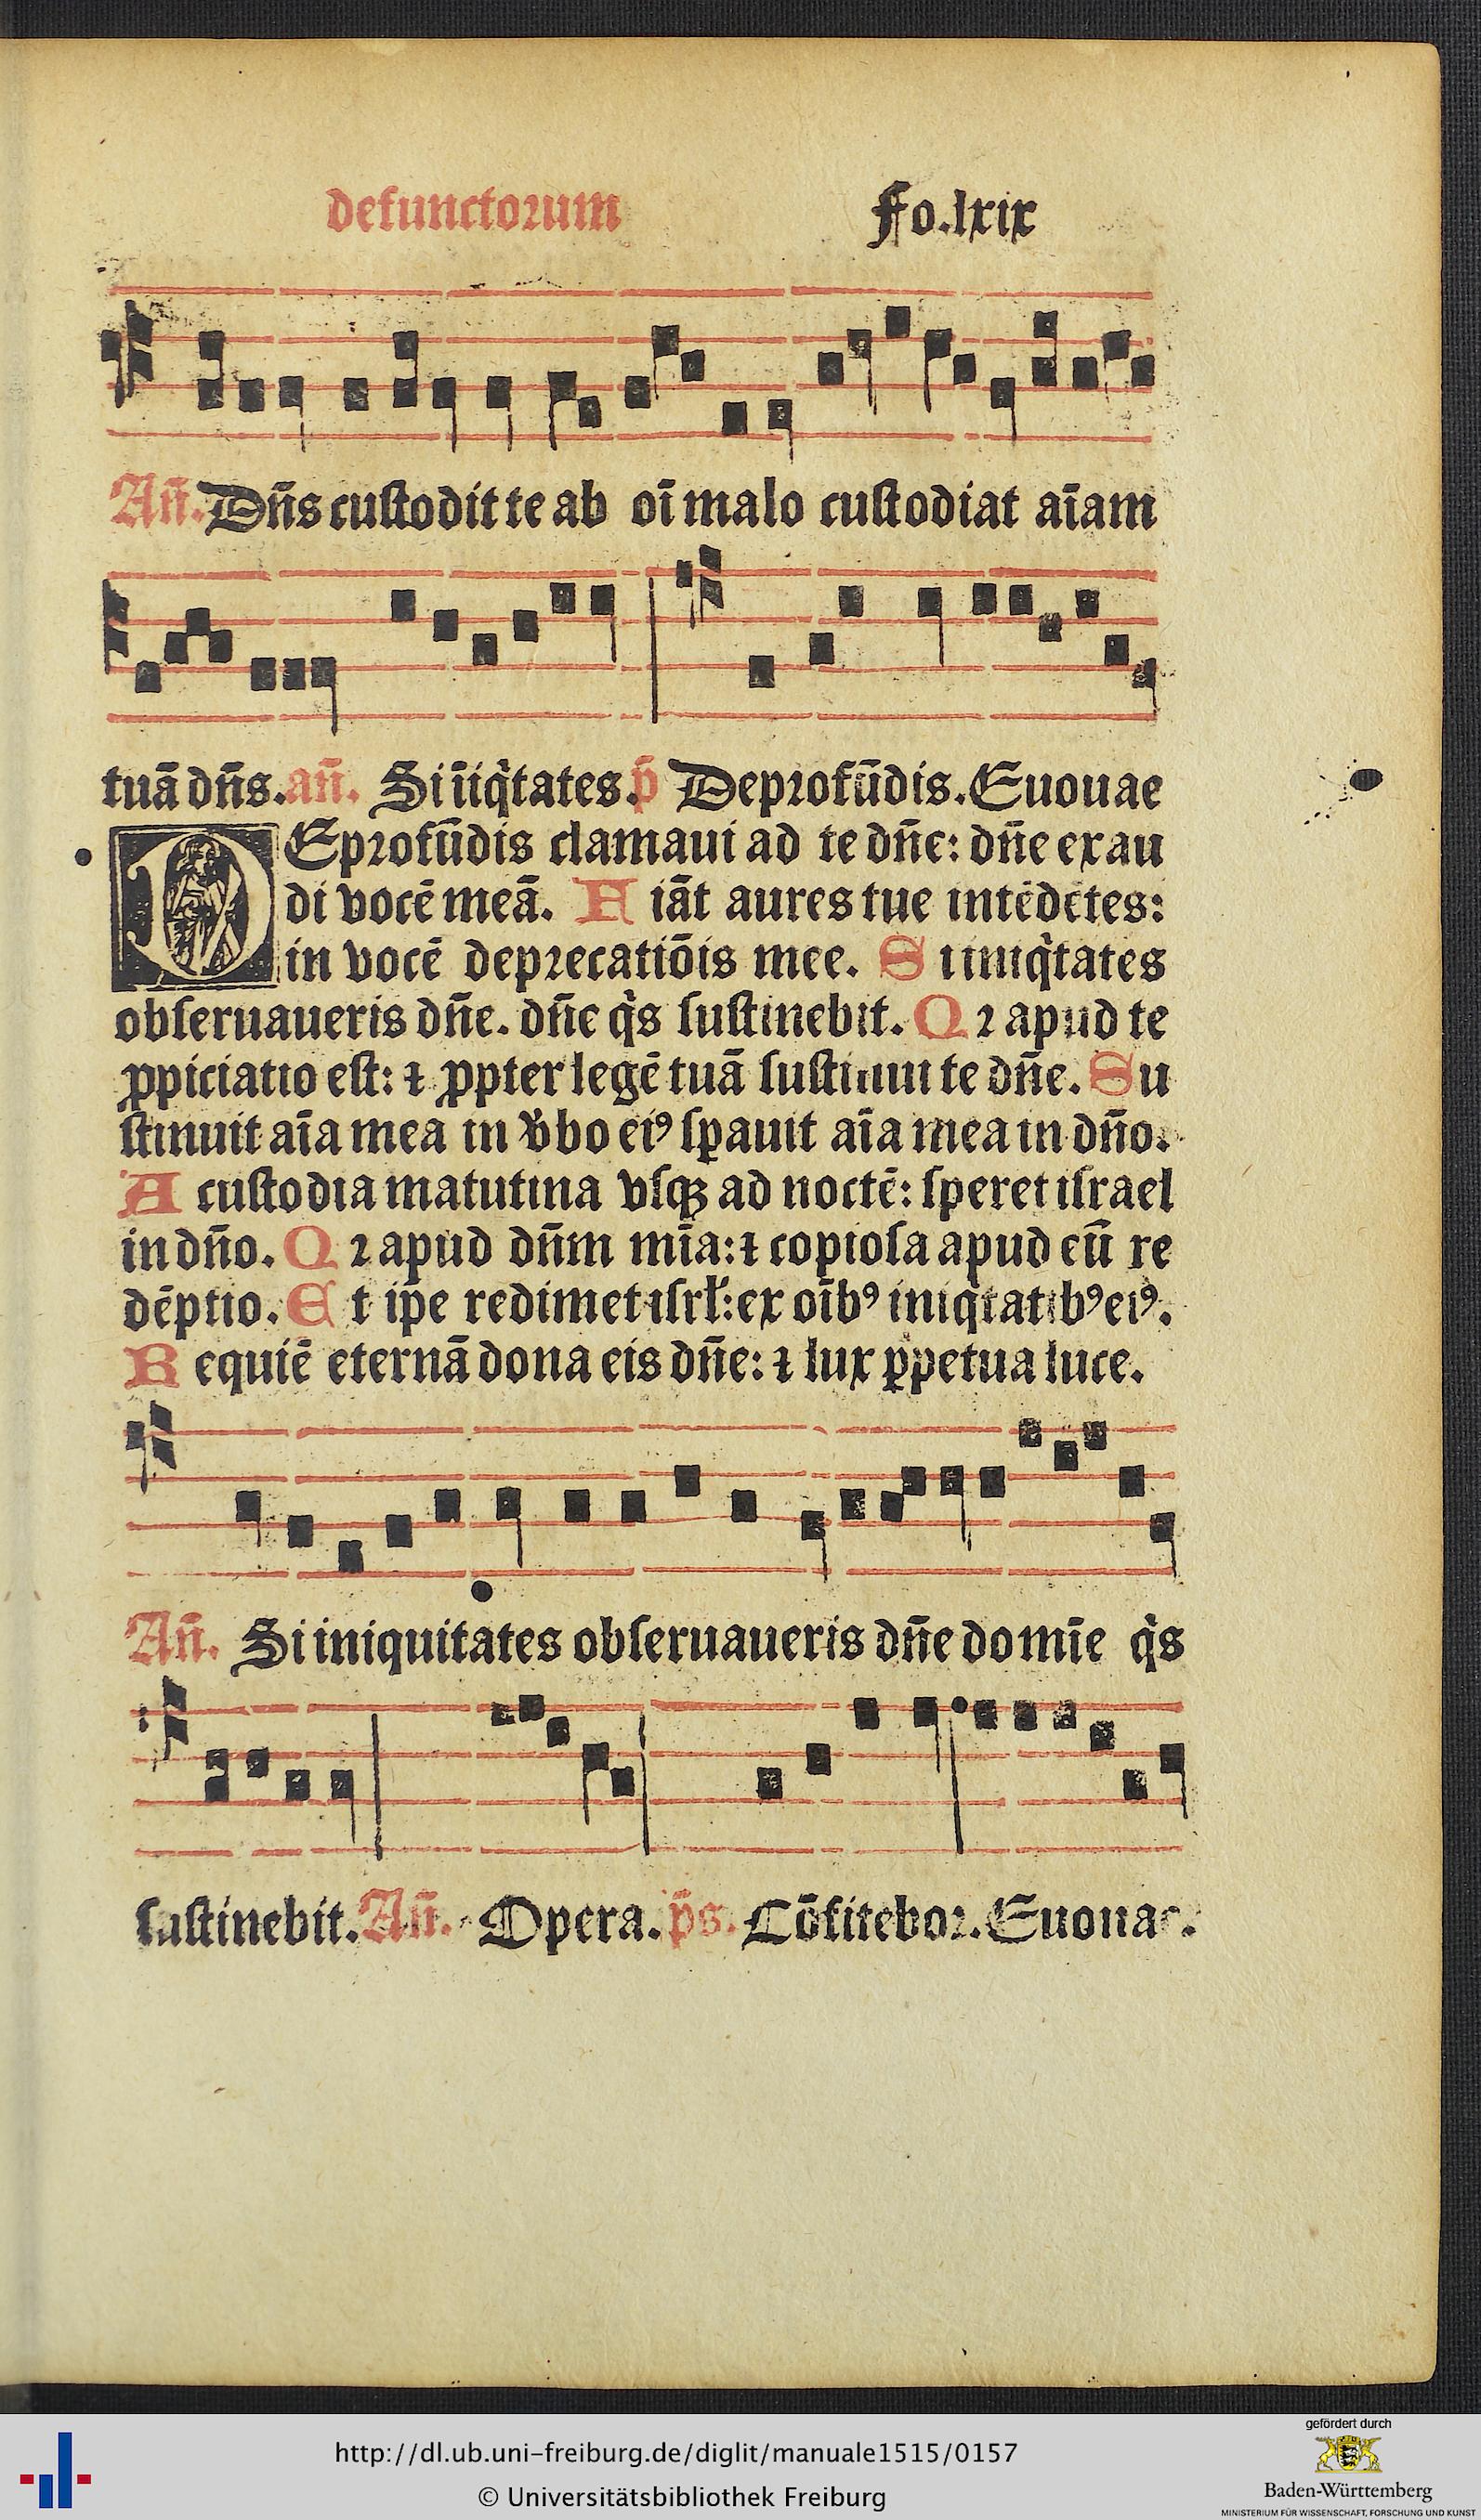 defunctorum Fo.lxix
Añ. Dñs custodit te ab oī malo custodiat aīam
tuā dñs. añ. Si īiq̇tates. p̄ De profūdis. Euouae
DEprofūdis clamaui ad te dñe: dñe exau
di vocē meā. F iāt aures tue intēdētes:
in vocē deprecatiōis mee. S i iniq̇tates
obseruaueris dñe. dñe q̇s sustinebit. Q ꝛ apud te
ꝓpiciatio est: ⁊ ꝓpter legē tuā sustinui te dñe. Su
stinuit aīa mea in v̓bo eiꝰ sꝑauit aīa mea in dño.
A custodia matutina vsqꝫ ad noctē: speret israel
in dño. Q ꝛ apud dñm mīa: ⁊ copiosa apud eū re
dēptio. E t ip̄e redimet isrl̓: ex oībꝰ iniq̇tatibꝰ eiꝰ.
R equiē eternā dona eis dñe: ⁊ lux ꝑpetua luce.
Añ. Si iniquitates obseruaueris dñe domīe q̇s
sustinebit. Añ. Opera. p̄s. Cōfitebor. Euouae.
http://dl.ub.uni-freiburg.de/diglit/manuale1515/0157
© Universitätsbibliothek Freiburg
gefördert durch
Baden-Württemberg
MINISTERIUM FÜR WISSENSCHAFT, FORSCHUNG UND KUNST